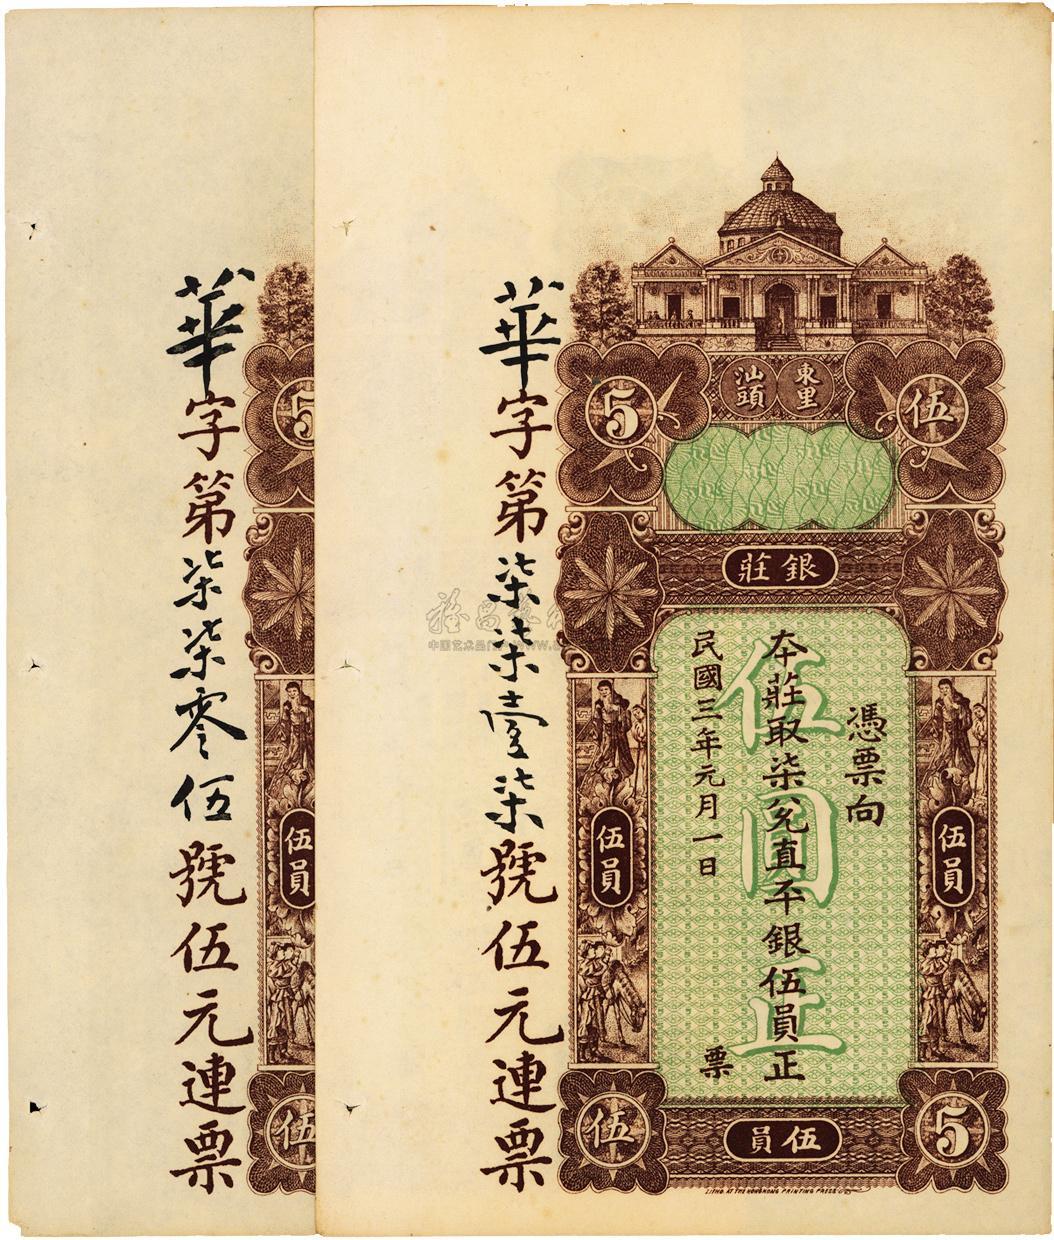 華字第柒柒零伍號伍元連票
華字第柒柒壹柒號伍元連票
5
伍
東里
汕頭
銀莊
憑票向
本莊取柒兌直平銀伍員正
票
民國三年元月一日
伍圓正
伍員
伍員
伍員
伍
伍
5
伍員
5
LITHO. AT THE HONGKONG PRINTING PRESS
中国艺术品